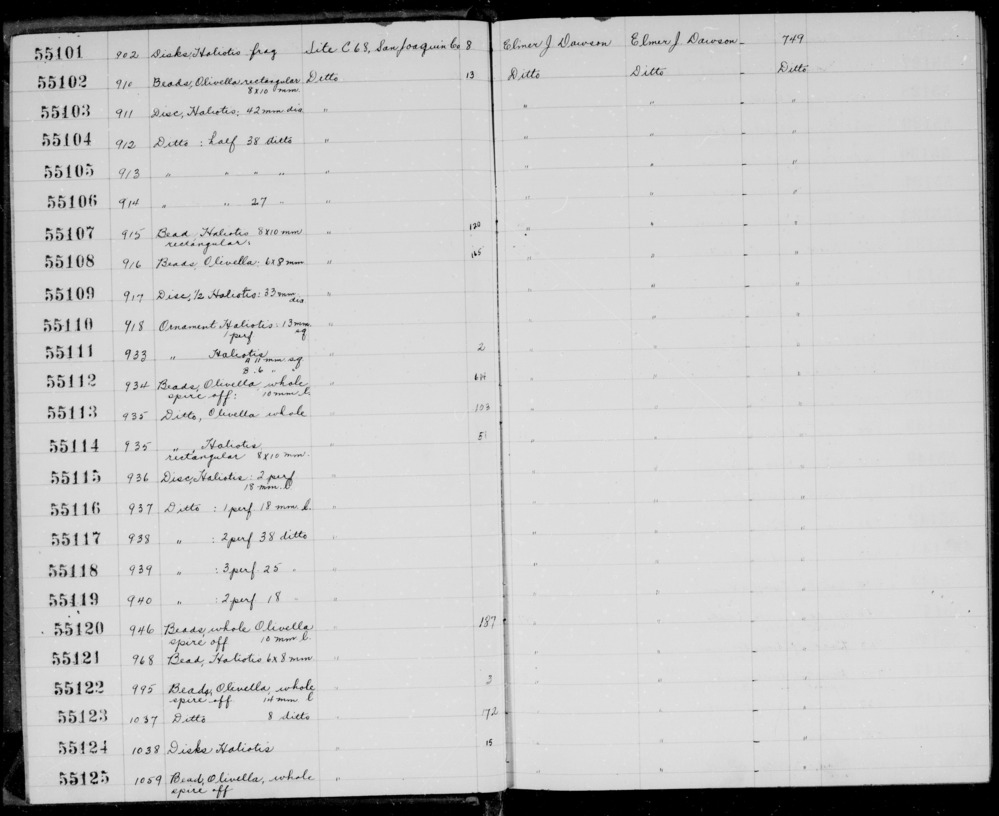 55101 902 Disks, Haliotis frag Site C68, San Joaquin Co 8 Elmer J Dawson Elmer J. Dawson - 749
55102 910 Beads, Olivella rectangular Ditto 13 Ditto Ditto - Ditto
8x10 mm.
55103 911 Disc, Haliotis; 42 mm dia " " " - "
55104 912 Ditto : half 38 ditto " " " - "
55105 913 " " " " " " " - "
55106 914 " " 27 " " " " - "
55107 915 Bead Haliotis 8x10 mm " 120 " " - "
rectangular.
55108 916 Beads Olivella: 6x8 mm " 165 " " - "
55109 917 Disc, 1/2 Haliotis: 33 mm " " " - "
dia
55110 918 Ornament Haliotis: 13 mm. " " " - "
1 perf sq
55111 933 " Haliotis " 2 " " - "
A 11 mm sq
B. 6 " "
55112 934 Beads, Olivella, whole " " " - "
spire off: 10 mm l.
55113 935 Ditto, Olivella whole " 103 " " - "
55114 935 " , Haliotis, " 51 " " - "
rectangular 8x10 mm.
55115 936 Disc, Haliotis: 2 perf " " " - "
18 mm. l
55116 937 Ditto : 1 perf 18 mm l. " " " - "
55117 938 " : 2 perf 38 ditto " " " - "
55118 939 " : 3 perf 25 " " " " - "
55119 940 " : 2 perf 18 " " " " - "
55120 946 Beads, whole Olivella " 187 " " - "
spire off 10 mm l.
55121 968 Bead, Haliotis 6x8 mm " " " - "
55122 995 Beads, Olivella, whole " 3 " " - "
spire off 14 mm l
55123 1037 Ditto 8 ditto " 172 " " - "
55124 1038 Disks Haliotis " 15 " " - "
55125 1059 Bead, Olivella, whole " " " - "
spire off